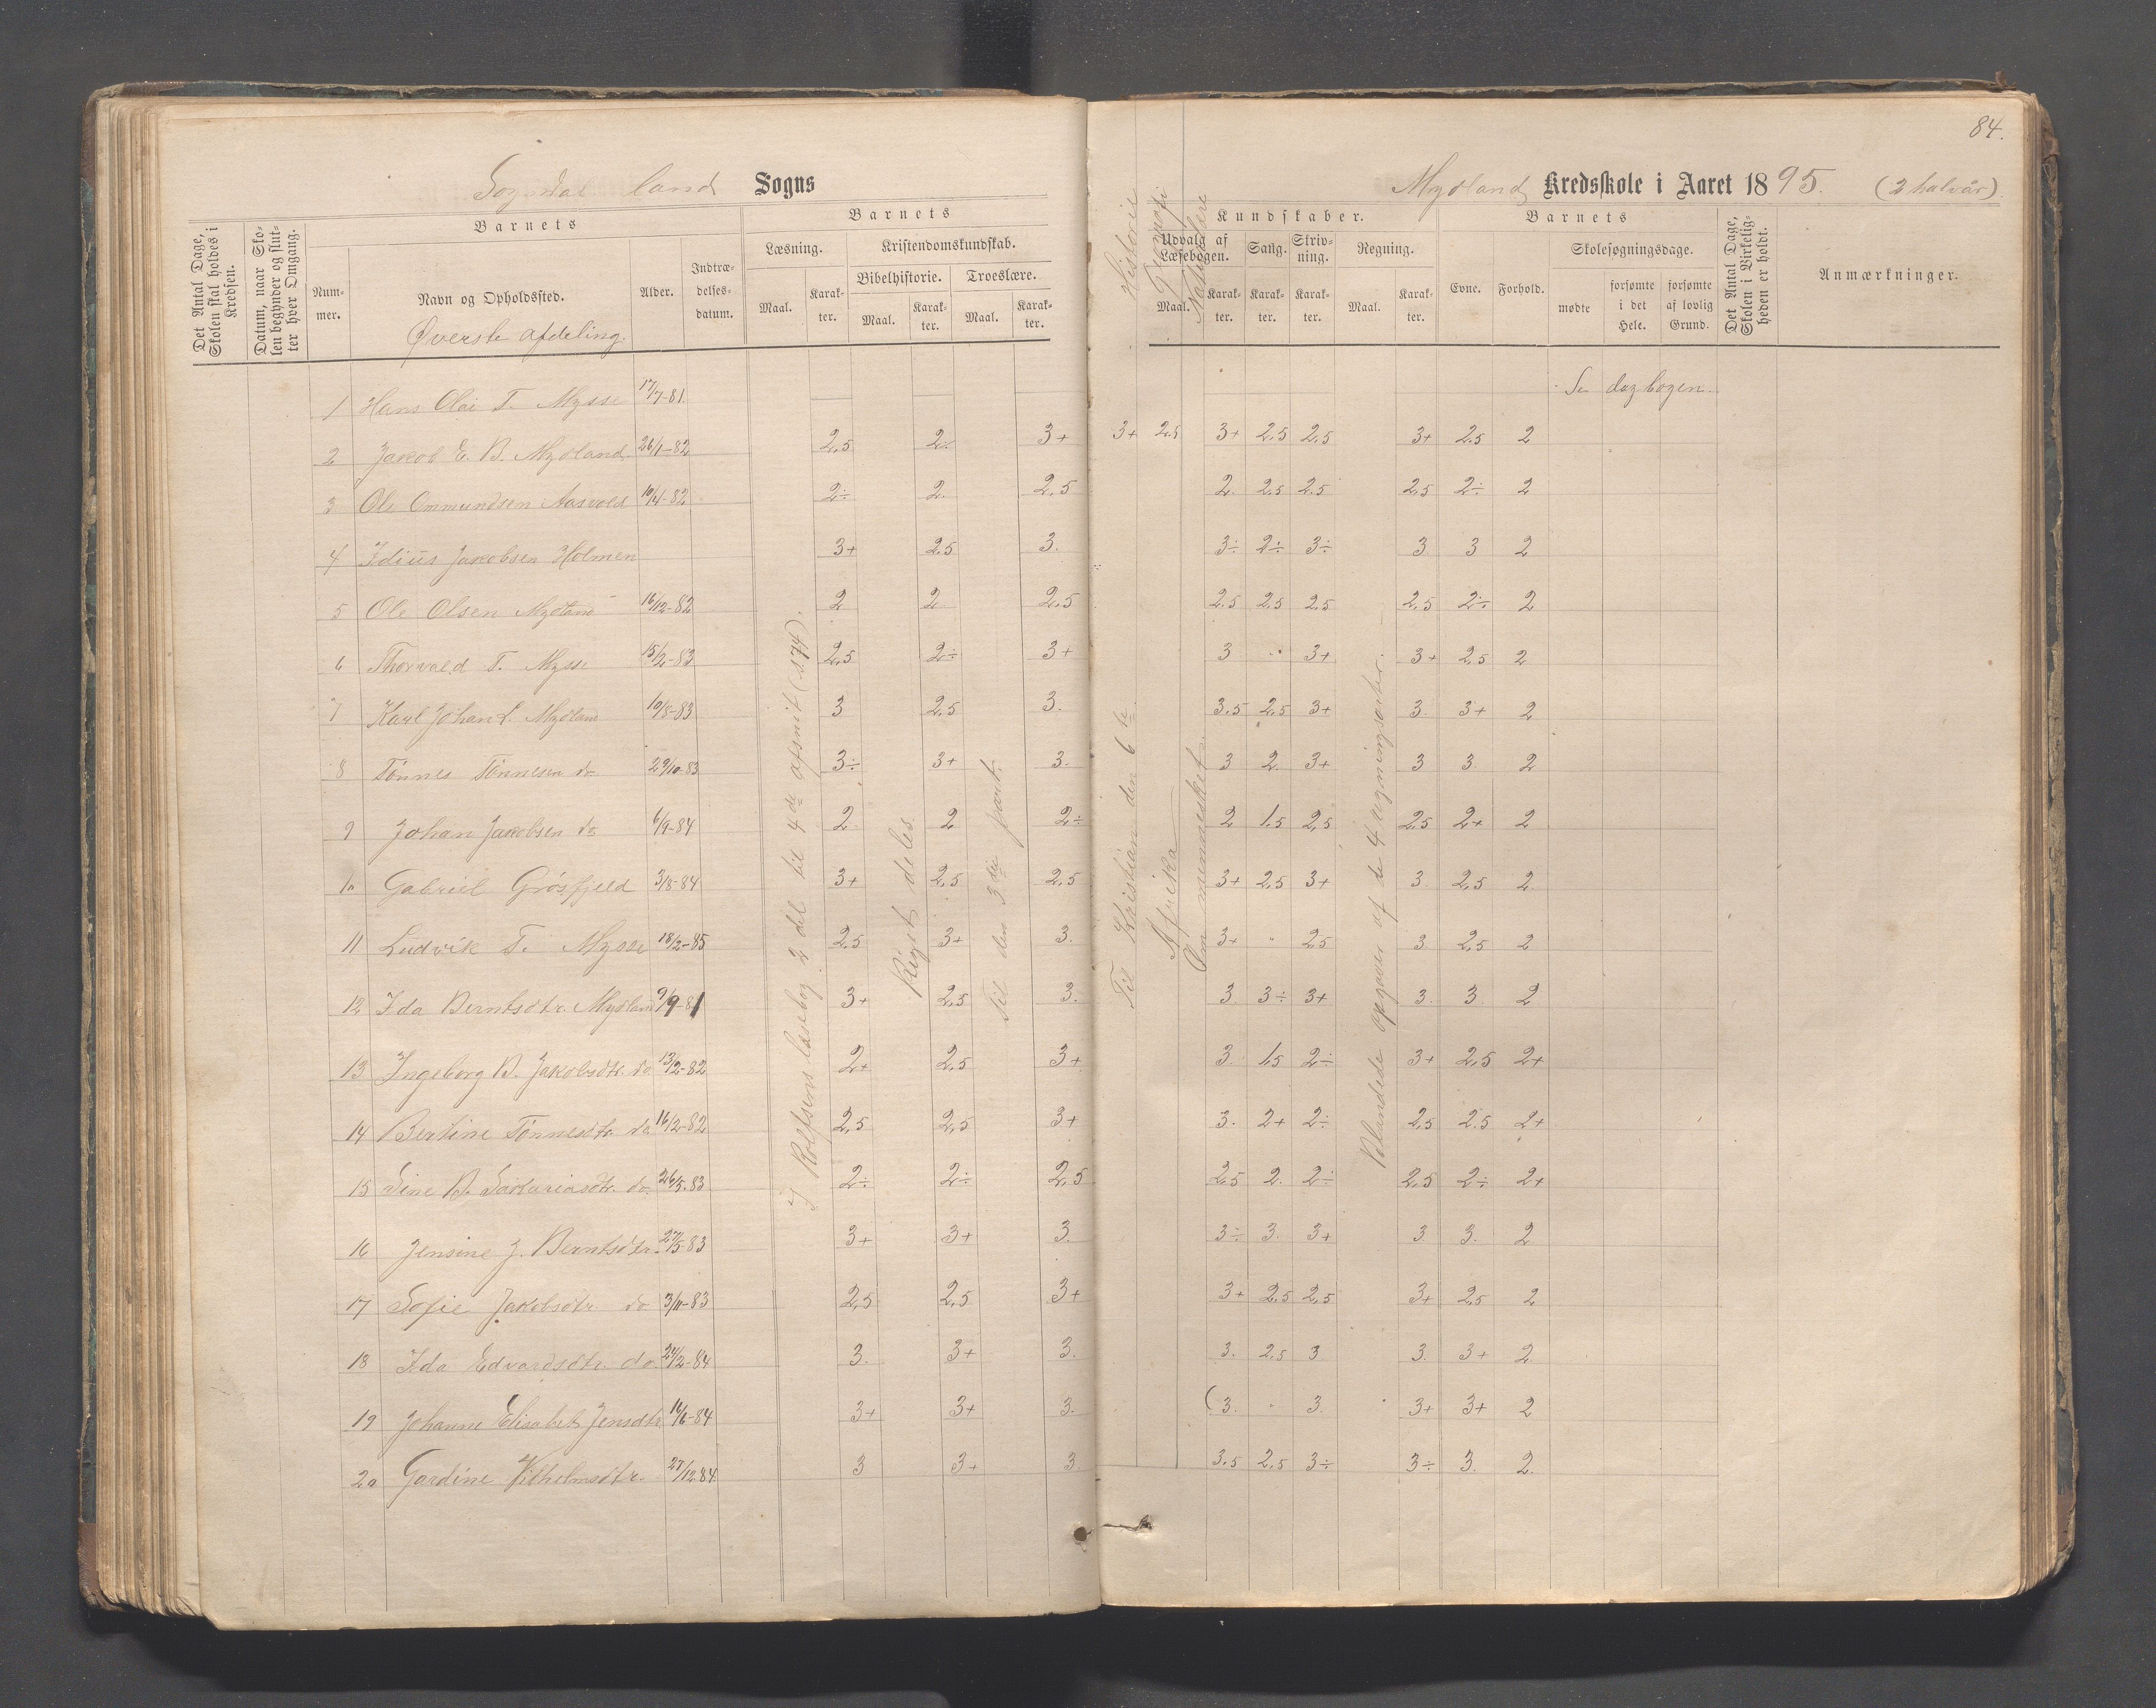 84.
Sogndal land Sogns
Mydland Kredsskole i Aaret 1895. (2 halvår)
Det Antal Dage, Skolen skal holdes i Kredsen.
Datum, naar Skolen begynder og slutter hver Omgang.
Barnets
Nummer.
Navn og Opholdssted.
Alder.
Indtrædelsesdatum.
Barnets
Læsning.
Maal.
Karakter.
Kristendomskundskab.
Bibelhistorie.
Maal.
Karakter.
Troeslære.
Maal.
Karakter.
Historie
Geografi
Naturlære
Kundskaber.
Udvalg af Læsebogen.
Maal.
Karakter.
Sang.
Karakter.
Skrivning.
Karakter.
Regning.
Maal.
Karakter.
Barnets
Evne.
Forhold.
Skolesøgningsdage.
mødte
forsømte i det Hele.
forsømte af lovlig Grund.
Det Antal Dage, Skolen i Virkeligheden er holdt.
Anmærkninger.
Øverste afdeling.
1 Hans Olai T. Mysse 17/7-81 Se dagbogen
2 Jakob E. B. Mydland 26/1-82 2,5 2÷ 3+ 3+ 2.5 3+ 2.5 2.5 3+ 2.5 2
3 Ole Ommundsen Aasvold 10/4-82 2÷ 2. 2,5 2. 2.5 2.5 2,5 2÷ 2
4 Idius Jakobsen Holmen 3+ 2.5 3. 3÷ 2÷ 3÷ 3 3 2
5 Ole Olsen Mydland 16/12-82 2 2 2.5 2.5 2.5 2.5 2.5 2÷ 2
6 Thorvald T. Mysse 15/2-83 2,5 2÷ 3+ 3 " 3+ 3+ 2.5 2
7 Karl Johan L. Mydland 10/8-83 3 2.5 3. 3.5 2.5 3+ 3. 3+ 2
8 Tønnes Tønnesen do 29/10-83 3÷ 3+ 3. 3 2 3+ 3 3. 2
9 Johan Jakobsen do 6/9-84 2 2 2÷ 2 1.5 2,5 2.5 2+ 2
10 Gabriel Grøsfjeld 3/8-84 3+ 2,5 2,5 3+ 2,5 3+ 3 2,5 2
11 Ludvik T. Mysse 18/2-85 2.5 3+ 3. 3+ " 2.5 3 2,5 2
12 Ida Berntsdtr. Mydland 9/9-81 3+ 2,5 3. 3. 3÷ 3+ 3. 3. 2
13 Ingeborg B. Jakobsdtr. do 13/2-82 2+ 2,5 3+ 3. 1,5 2÷ 3+ 2,5 2+
14 Bertine Tønnesdtr. do 16/2-82 2,5 2,5 3+ 3. 2+ 2÷ 2,5 2.5 2+
15 Sine B. Sakariasdtr. do 26/5-83 2÷ 2÷ 2,5 2,5 2. 2÷ 2,5 2÷ 2+
16 Jensine J. Berntsdtr. 27/5-83 3+ 3+ 3. 3÷ 3. 3+ 3 3. 2
17 Sofie Jakobsdtr. do 3/11-83 2,5 2,5 3+ 3+ 2.5 2,5 3+ 2,5 2
18 Ida Edvardsdtr. do. 24/2-84 3. 3+ 3. 3. 2.5 3 3. 3+ 2
19 Johanne Elisabet Jensdtr. 14/6-84 3+ 3+ 3. (3. " 3. 3+ 3+ 2
20 Gardine Vilholmsdtr. 27/12-84 3 3+ 3 3.5 2,5 3÷ 3÷ 3. 2.
I Rolfsens læsebog 2 del til 4de afsnit (s. 174).
Riget deles.
Til den 3die part.
Til Kristian den 6te
Afrika
Om mennesket.
Blandede opgaver af de 4 regningsarter.